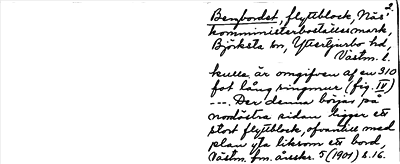 2.
Benbordet, flyttblock, Näs
komministerboställes mark,
Björksta sn, Yttertjurbo hd,
Västm. l.
kulle, är omgifven af en 310
fot lång ringmur (fig. IV)
---. Der denna börjas på
nordöstra sidan ligger ett
stort flyttblock, ofvantill med
plan yta liksom ett bord,
Västm. fm. årsskr. 5 (1901) s. 16.